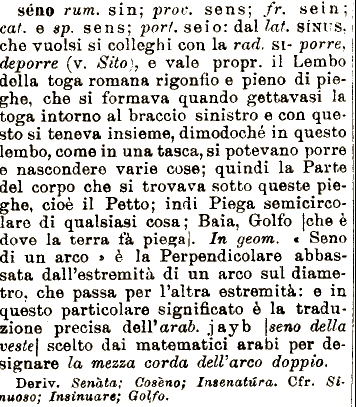 séno rum. sin; prov. sens; fr. sein;
cat. e sp. sens; port. seio: dal lat. SÍNUS,
che vuolsi si colleghi con la rad. SI- porre,
deporre (v. Sito), e vale propr. il Lembo
della toga romana rigonfio e pieno di pie-
ghe, che si formava quando gettavasi la
toga intorno al braccio sinistro e con que-
sto si teneva insieme, dimodoché in questo
lembo, come in una tasca, si potevano porre
e nascondere varie cose; quindi la Parte
del corpo che si trovava sotto queste pie-
ghe, cioè il Petto; indi Piega semicirco-
lare di qualsiasi cosa; Baia, Golfo |che è
dove la terra fà piega|. In geom. « Seno
di un arco » è la Perpendicolare abbas-
sata dall'estremità di un arco sul diame-
tro, che passa per l'altra estremità: e in
questo particolare significato è la tradu-
zione precisa dell'arab. jayb |seno della
veste| scelto dai matematici arabi per de-
signare la mezza corda dell'arco doppio.
Deriv. Senàta; Cosèno; Insenatúra. Cfr. Si-
nuoso; Insinuare; Golfo.